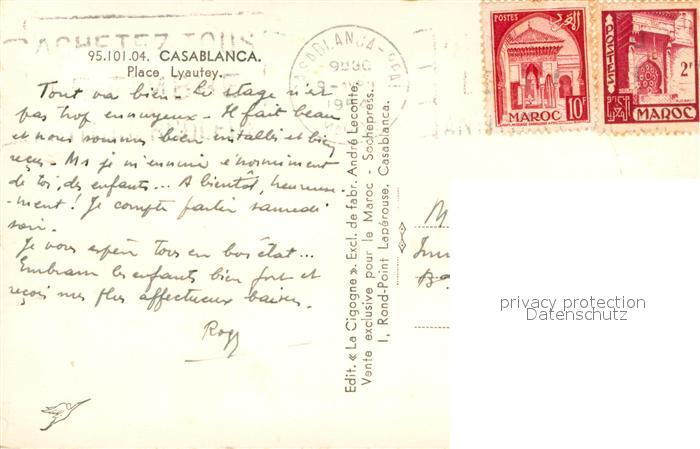 ACHETEZ TOUS
95.101.04. CASABLANCA.
Place Lyautey.
Tout va bien - Le stage n'est
pas trop ennuyeux - Il fait beau
et nous sommes bien installés et bien
reçus - Ms je m'ennuie énormément
de toi, des enfants... A bientôt, heureuse-
ment ! Je compte partir samedi
soir.
Je vous espère tous en bon état...
Embrasse les enfants bien fort et
reçois mes plus affectueux baisers.
Edit. « La Cigogne ». Excl. de fabr. André Leconte.
Vente exclusive pour le Maroc - Sochepress.
1, Rond-Point Lapérouse. Casablanca.
CASABLANCA
POSTES
10F
MAROC
POSTES
2F
MAROC
M
privacy protection
Datenschutz